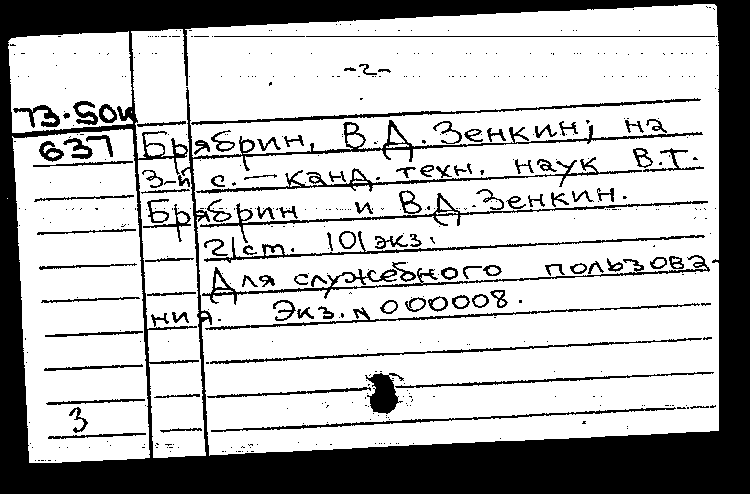 -2-
73-50к
637
Брябрин, В.Д. Зенкин; на
3-й с. — канд. техн. наук В.Т.
Брябрин и В.Д. Зенкин.
21 ст. 101 экз.
Для служебного пользова-
ния. Экз. N 000008.
3